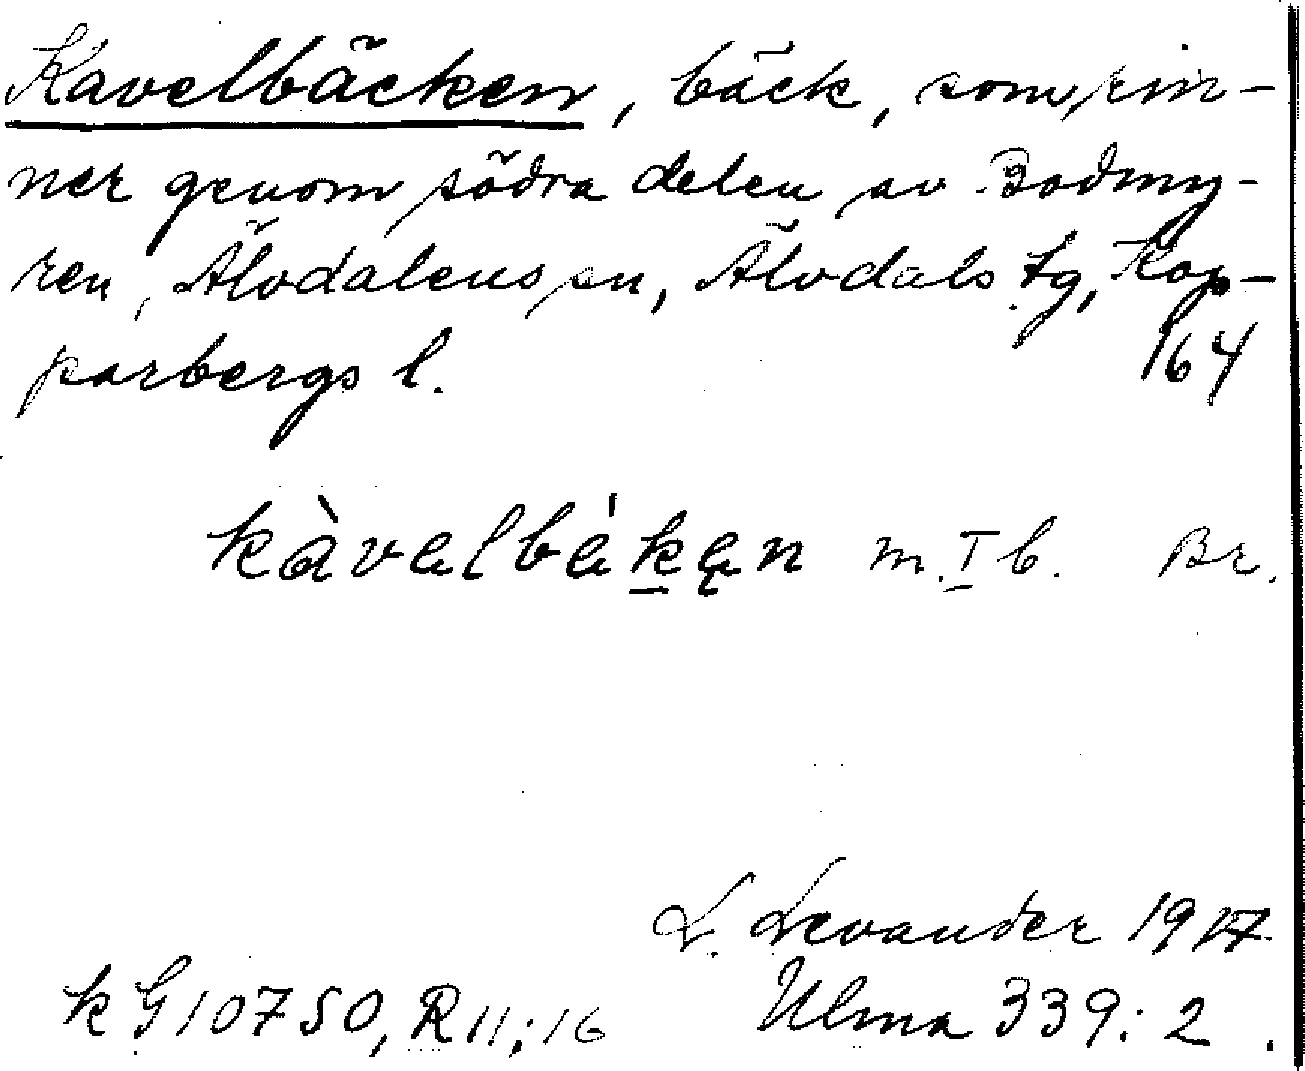 Kavelbäcken, bäck, som rin-
ner genom södra delen av Bodmy-
ren, Älvdalens sn, Älvdals tg, Kop-
parbergs l. 164
kàvelbèkęn m. I b. Br.
L. Levander 1917
kG10750, R11;16 Ulma 339:2.